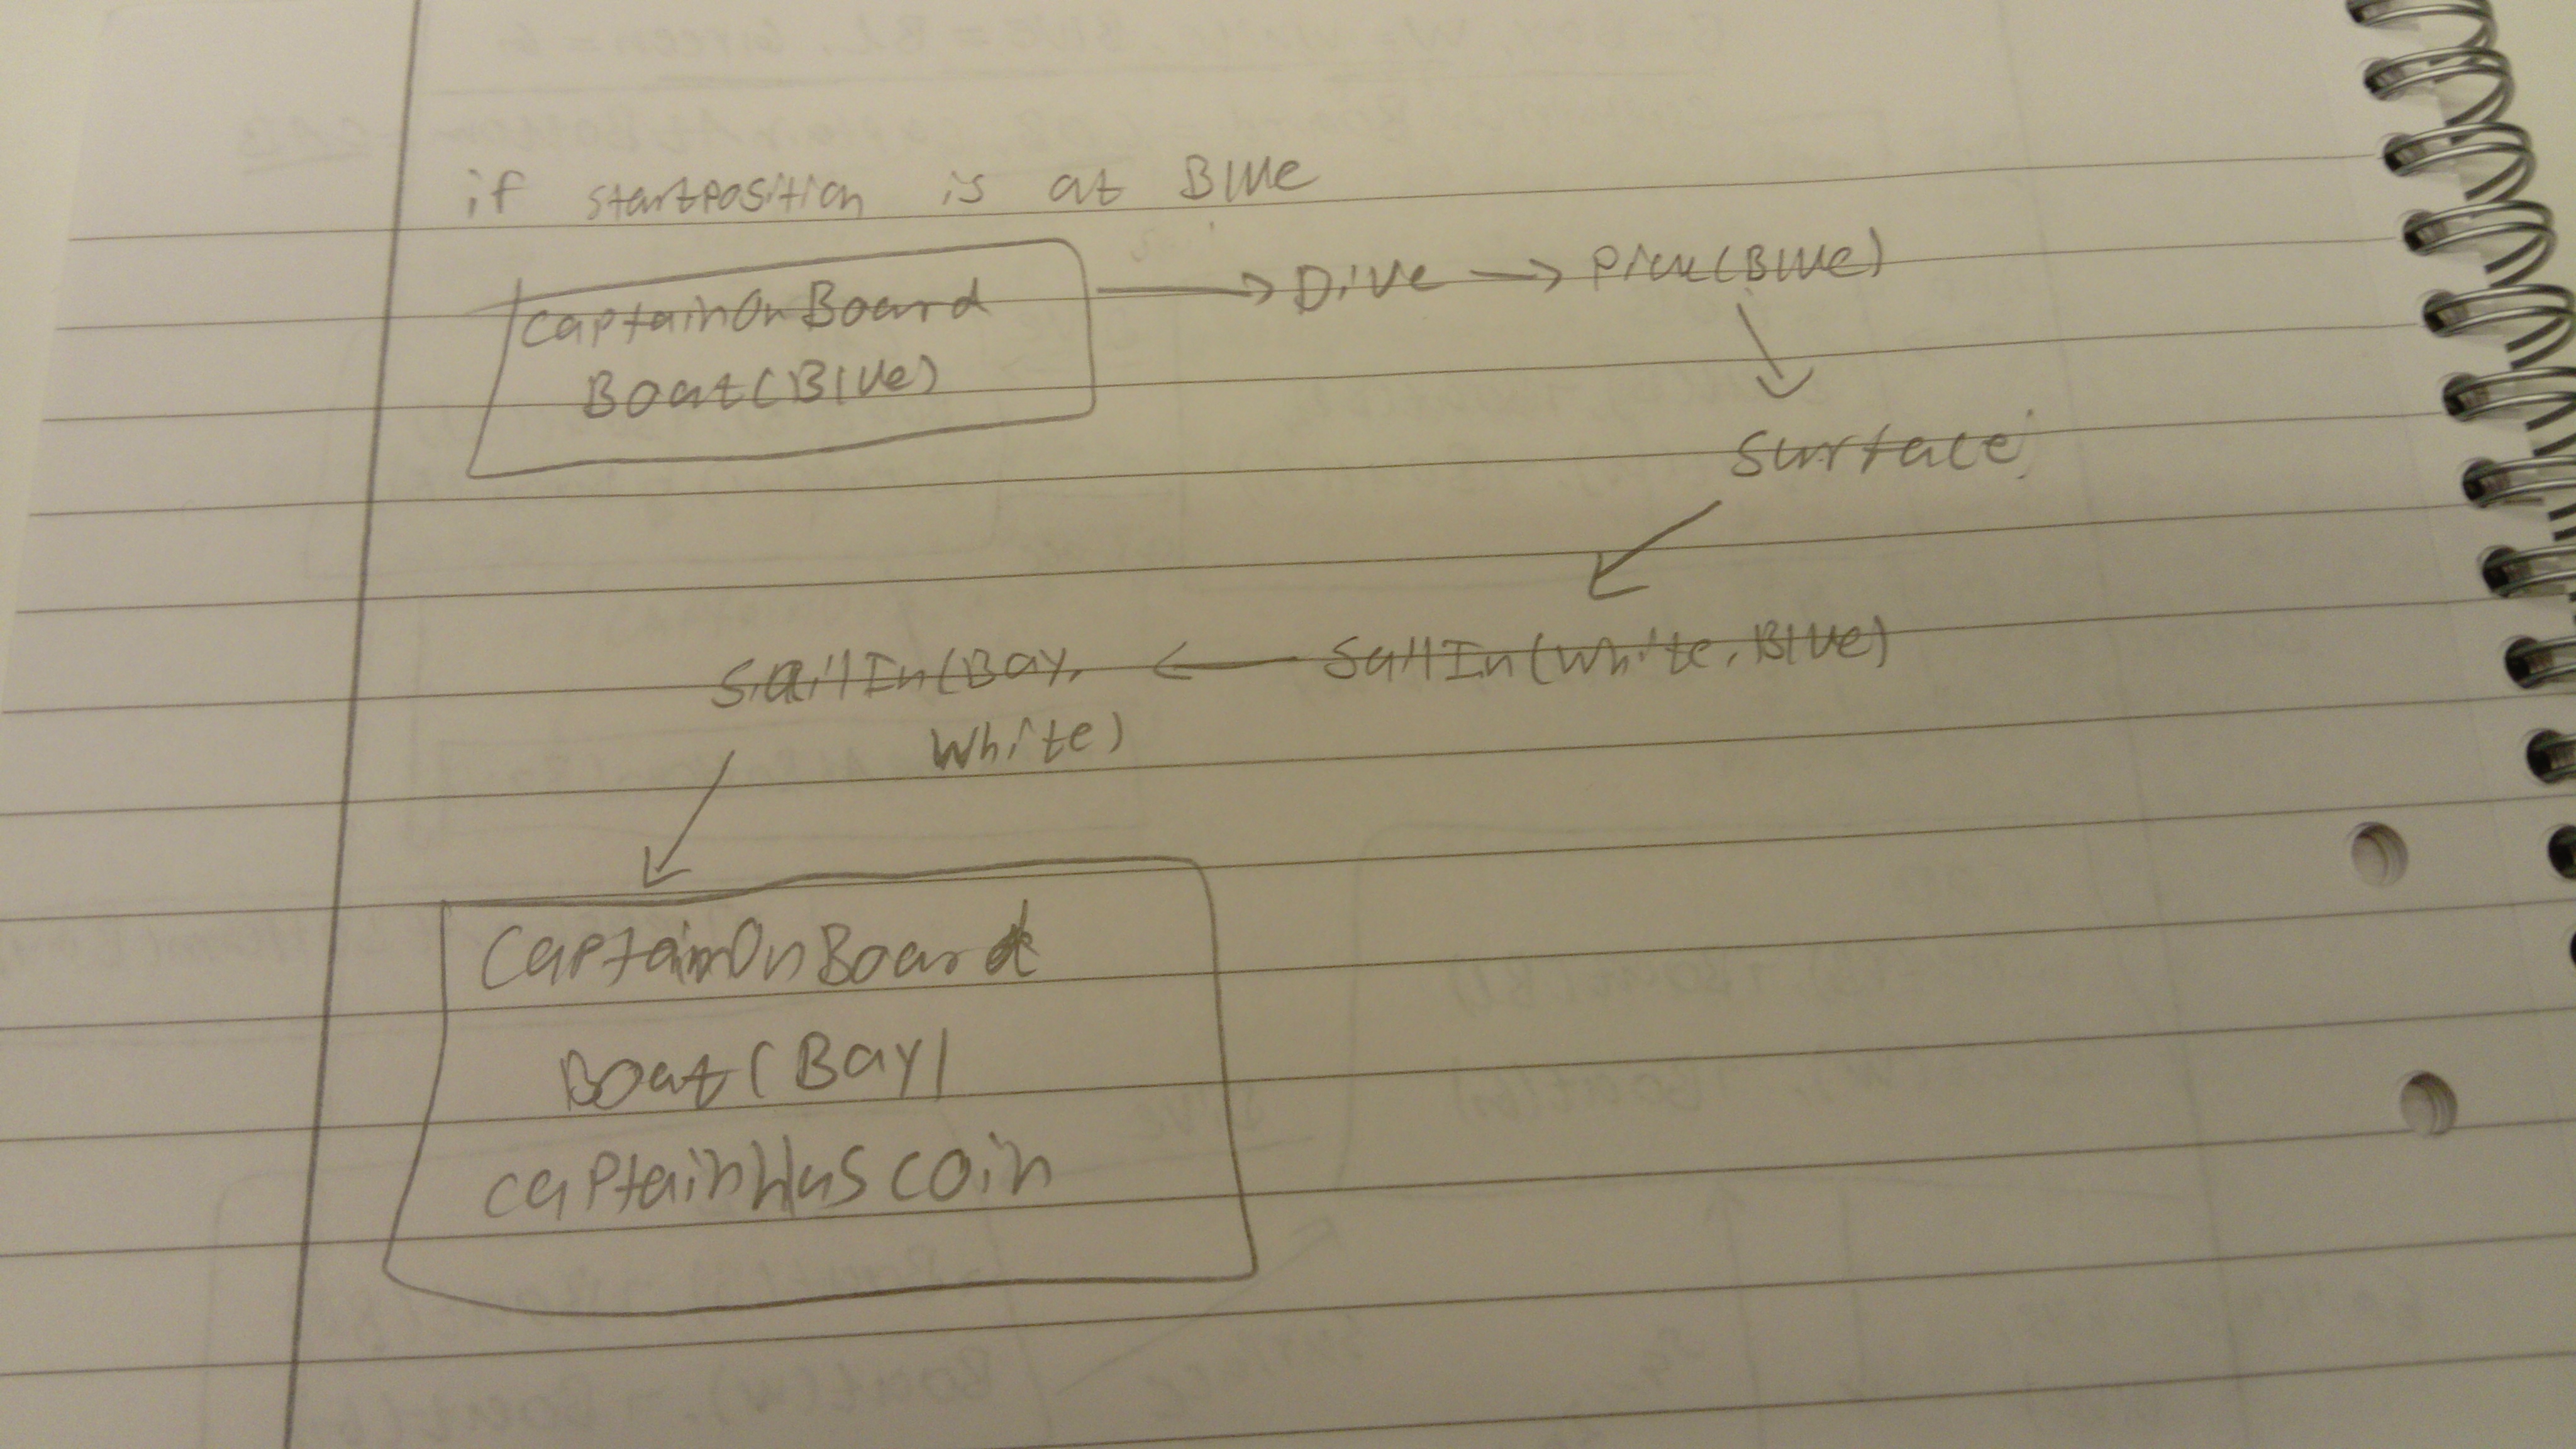 if startposition is at Blue
CaptainOnBoard
Boat(Blue)
Dive
Pick(Blue)
Surface
SailIn(White, Blue)
SailIn(Bay,
White)
CaptainOnBoard
Boat(Bay)
captainHas coin